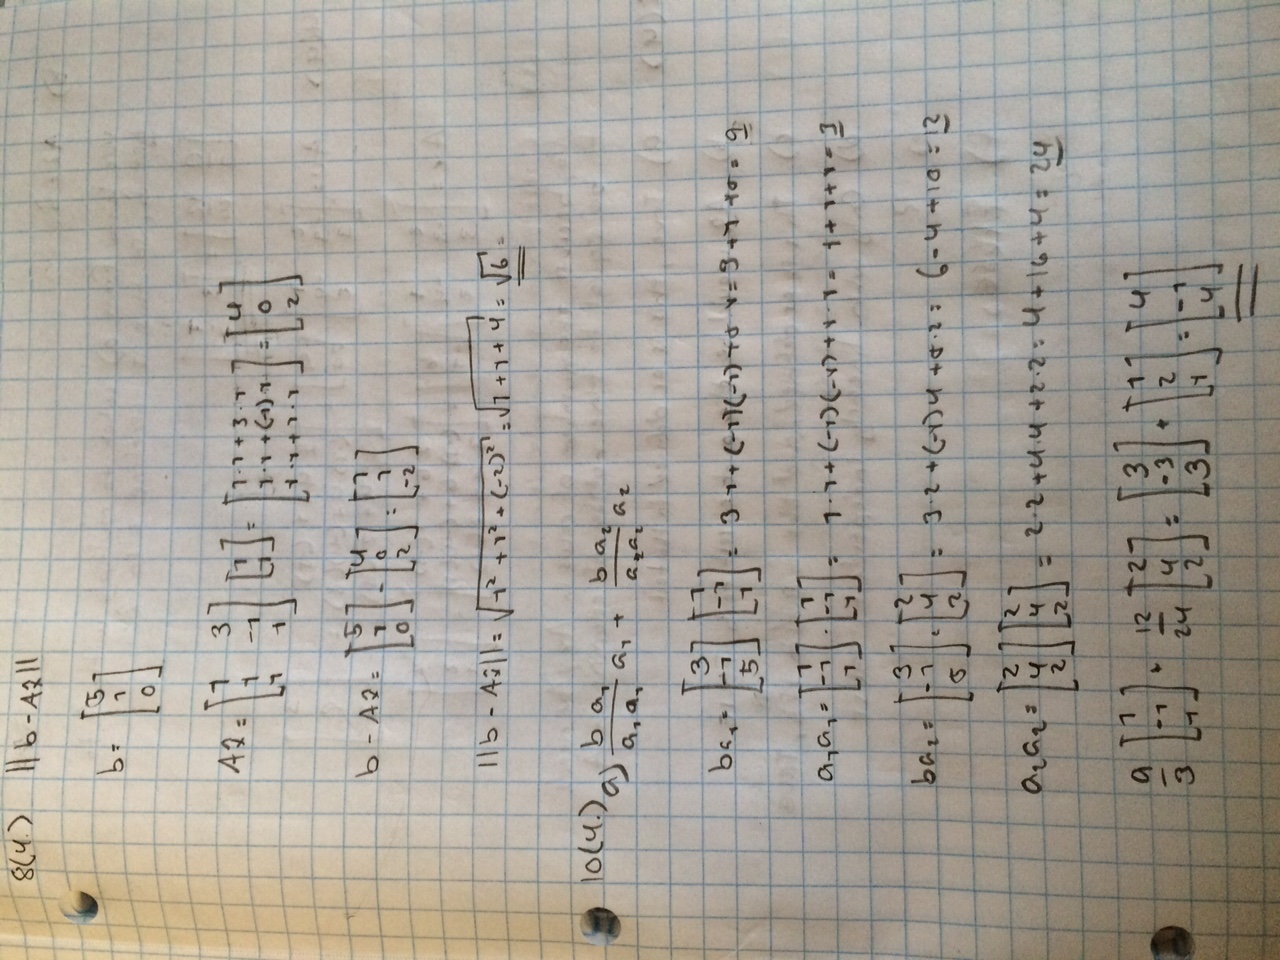 8(4.) ||b - Ax̂||
b = [5; 1; 0]
Ax̂ = [1 3; 1 -1; 1 1] [1; 1] = [1·1+3·1; 1·1+(-1)·1; 1·1+1·1] = [4; 0; 2]
b - Ax̂ = [5; 1; 0] - [4; 0; 2] = [1; 1; -2]
||b - Ax̂|| = √(1² + 1² + (-2)²) = √(1+1+4) = √6 =
10(4.) a) (b a₁)/(a₁ a₁) a₁ + (b a₂)/(a₂ a₂) a₂
ba₁ = [3; -1; 5] [1; -1; 1] = 3·1+(-1)(-1)+5·1 = 3+1+5 = 9
a₁a₁ = [1; -1; 1] · [1; -1; 1] = 1·1+(-1)(-1)+1·1 = 1+1+1 = 3
ba₂ = [3; -1; 5] · [2; 4; 2] = 3·2+(-1)4+5·2 = 6-4+10 = 12
a₂a₂ = [2; 4; 2] [2; 4; 2] = 2·2+4·4+2·2 = 4+16+4 = 24
9/3 [1; -1; 1] + 12/24 [2; 4; 2] = [3; -3; 3] + [1; 2; 1] = [4; -1; 4]